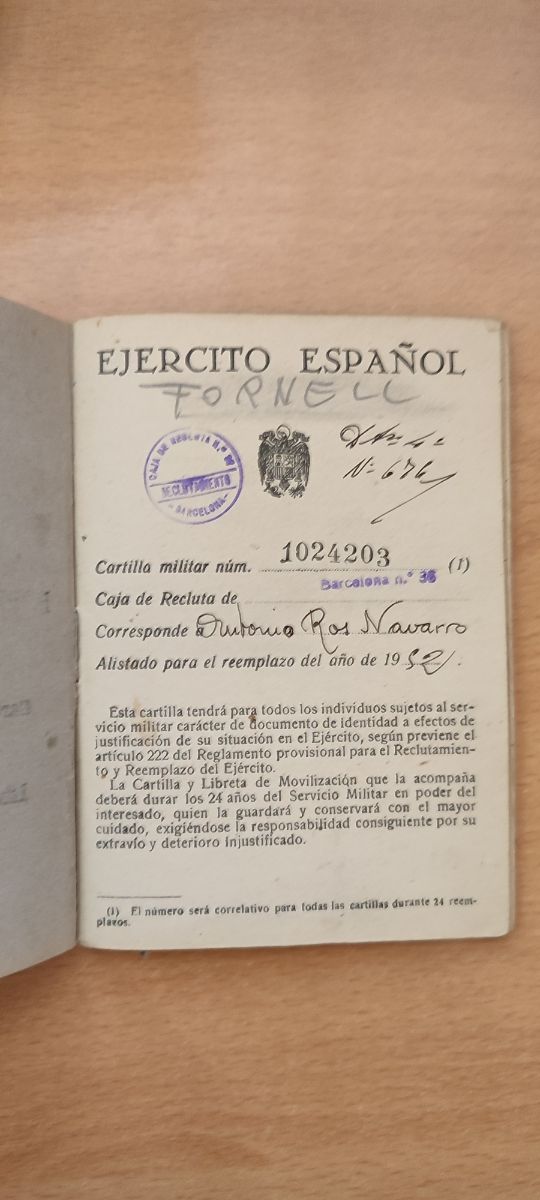 EJERCITO ESPAÑOL
FORNELL
CAJA DE RECLUTA N.º 36
RECLUTAMIENTO
BARCELONA
4ª
Nº 676
Cartilla militar núm. 1024203 (1)
Barcelona n.º 36
Caja de Recluta de
Corresponde a Antonio Ros Navarro
Alistado para el reemplazo del año de 1952.
Esta cartilla tendrá para todos los individuos sujetos al ser-
vicio militar carácter de documento de identidad a efectos de
justificación de su situación en el Ejército, según previene el
artículo 222 del Reglamento provisional para el Reclutamien-
to y Reemplazo del Ejército.
La Cartilla y Libreta de Movilización que la acompaña
deberá durar los 24 años del Servicio Militar en poder del
interesado, quien la guardará y conservará con el mayor
cuidado, exigiéndose la responsabilidad consiguiente por su
extravío y deterioro injustificado.
(1) El número será correlativo para todas las cartillas durante 24 reem-
plazos.